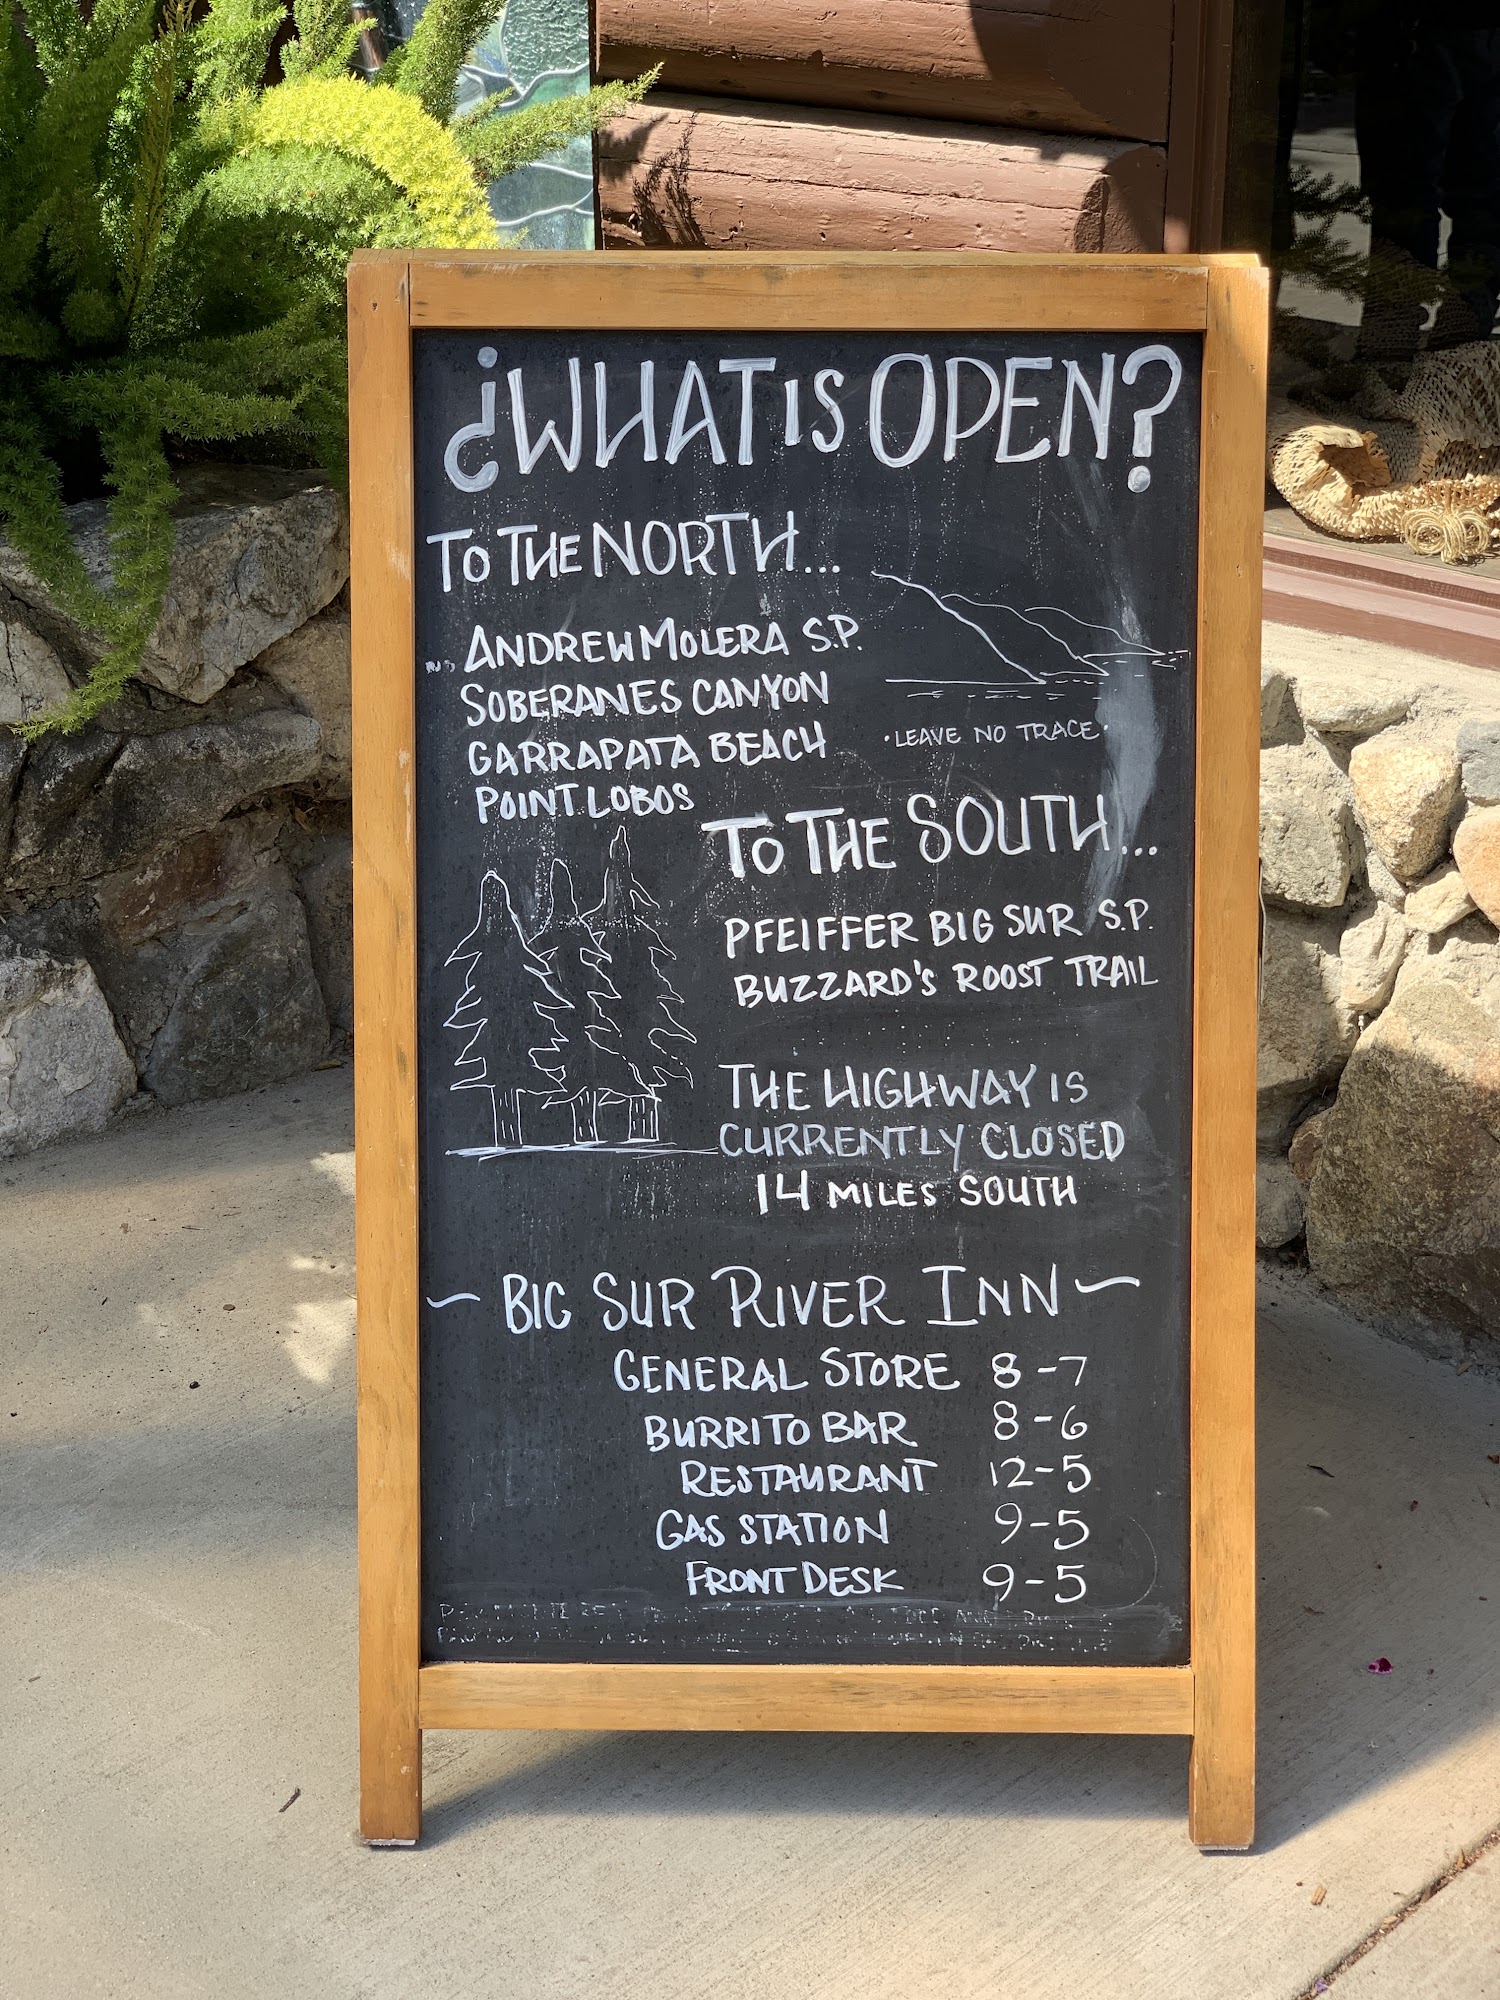 ¿WHAT IS OPEN?
TO THE NORTH...
ANDREW MOLERA S.P.
SOBERANES CANYON
GARRAPATA BEACH
POINT LOBOS
·LEAVE NO TRACE·
TO THE SOUTH...
PFEIFFER BIG SUR S.P.
BUZZARD'S ROOST TRAIL
THE HIGHWAY IS
CURRENTLY CLOSED
14 MILES SOUTH
~ BIG SUR RIVER INN ~
GENERAL STORE 8-7
BURRITO BAR 8-6
RESTAURANT 12-5
GAS STATION 9-5
FRONT DESK 9-5